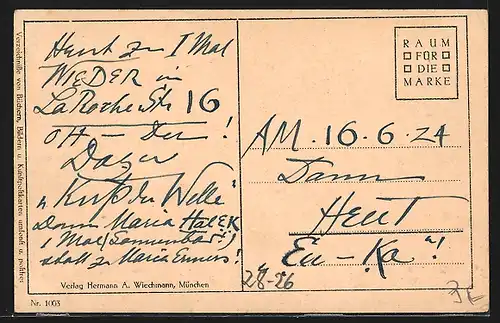 Heut zu I Mal
WIEDER in
LaRoche Str 16
OH – der!
Dazu
"Kuß der Welle"
Dann Maria Halek
1 Mal (Sonnenbad!)
statt zu Maria Emmers!
Verlag Hermann A. Wiechmann, München
Nr. 1003
Verzeichnisse von Büchern, Bildern u. Kunstpostkarten umsonst u. postfrei
RAUM
FÜR
DIE
MARKE
AM. 16.6.24
Dann
HEUT
"Eu-Ka"!
28-26